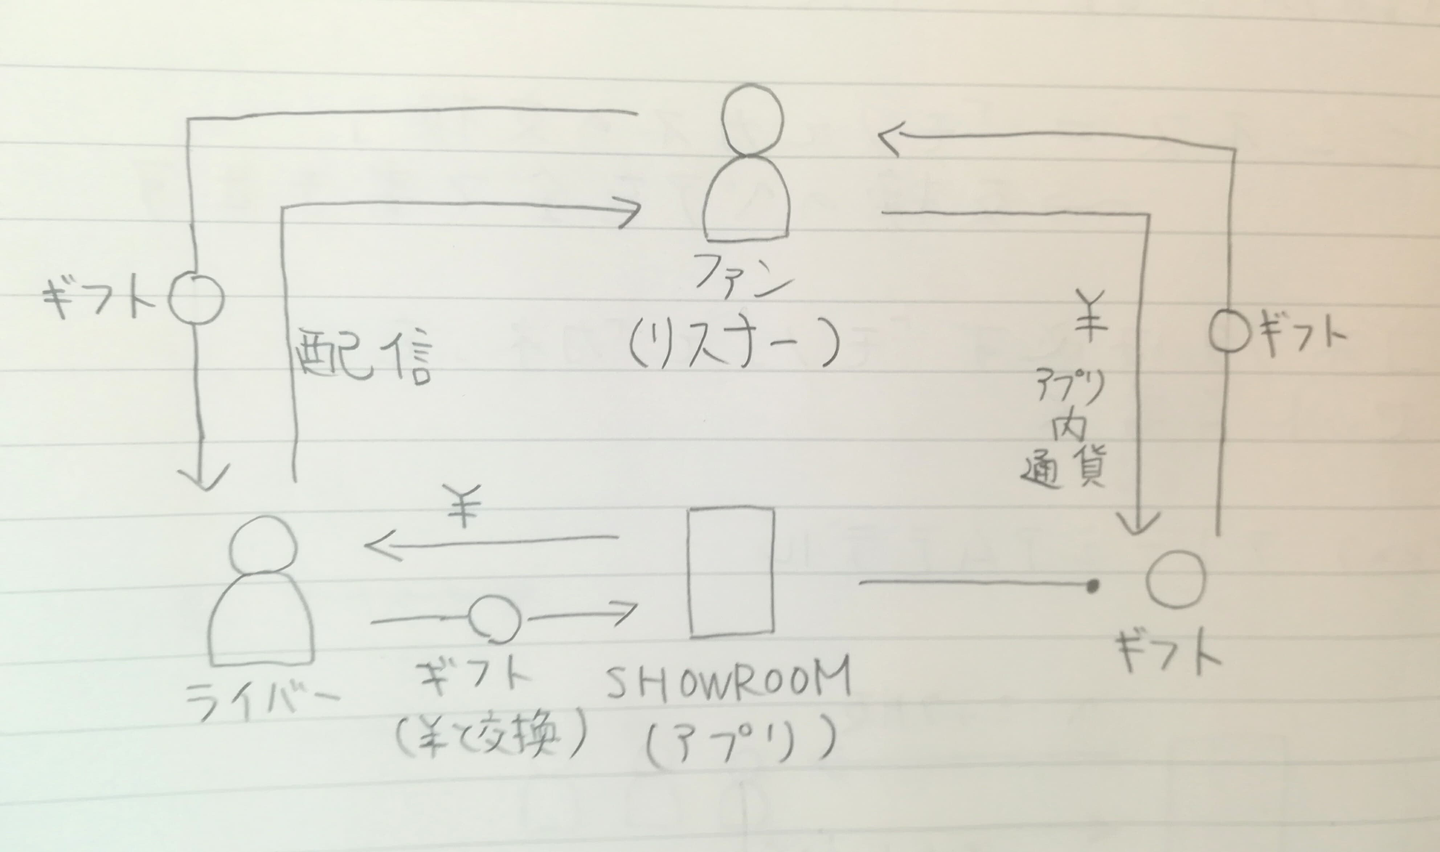 ギフト
配信
ファン
(リスナー)
¥
アプリ
内
通貨
ギフト
¥
ライバー
ギフト
(¥と交換)
SHOWROOM
(アプリ)
ギフト